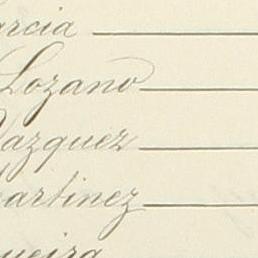 arcia
Lozano
Vazquez
Martinez
ueira